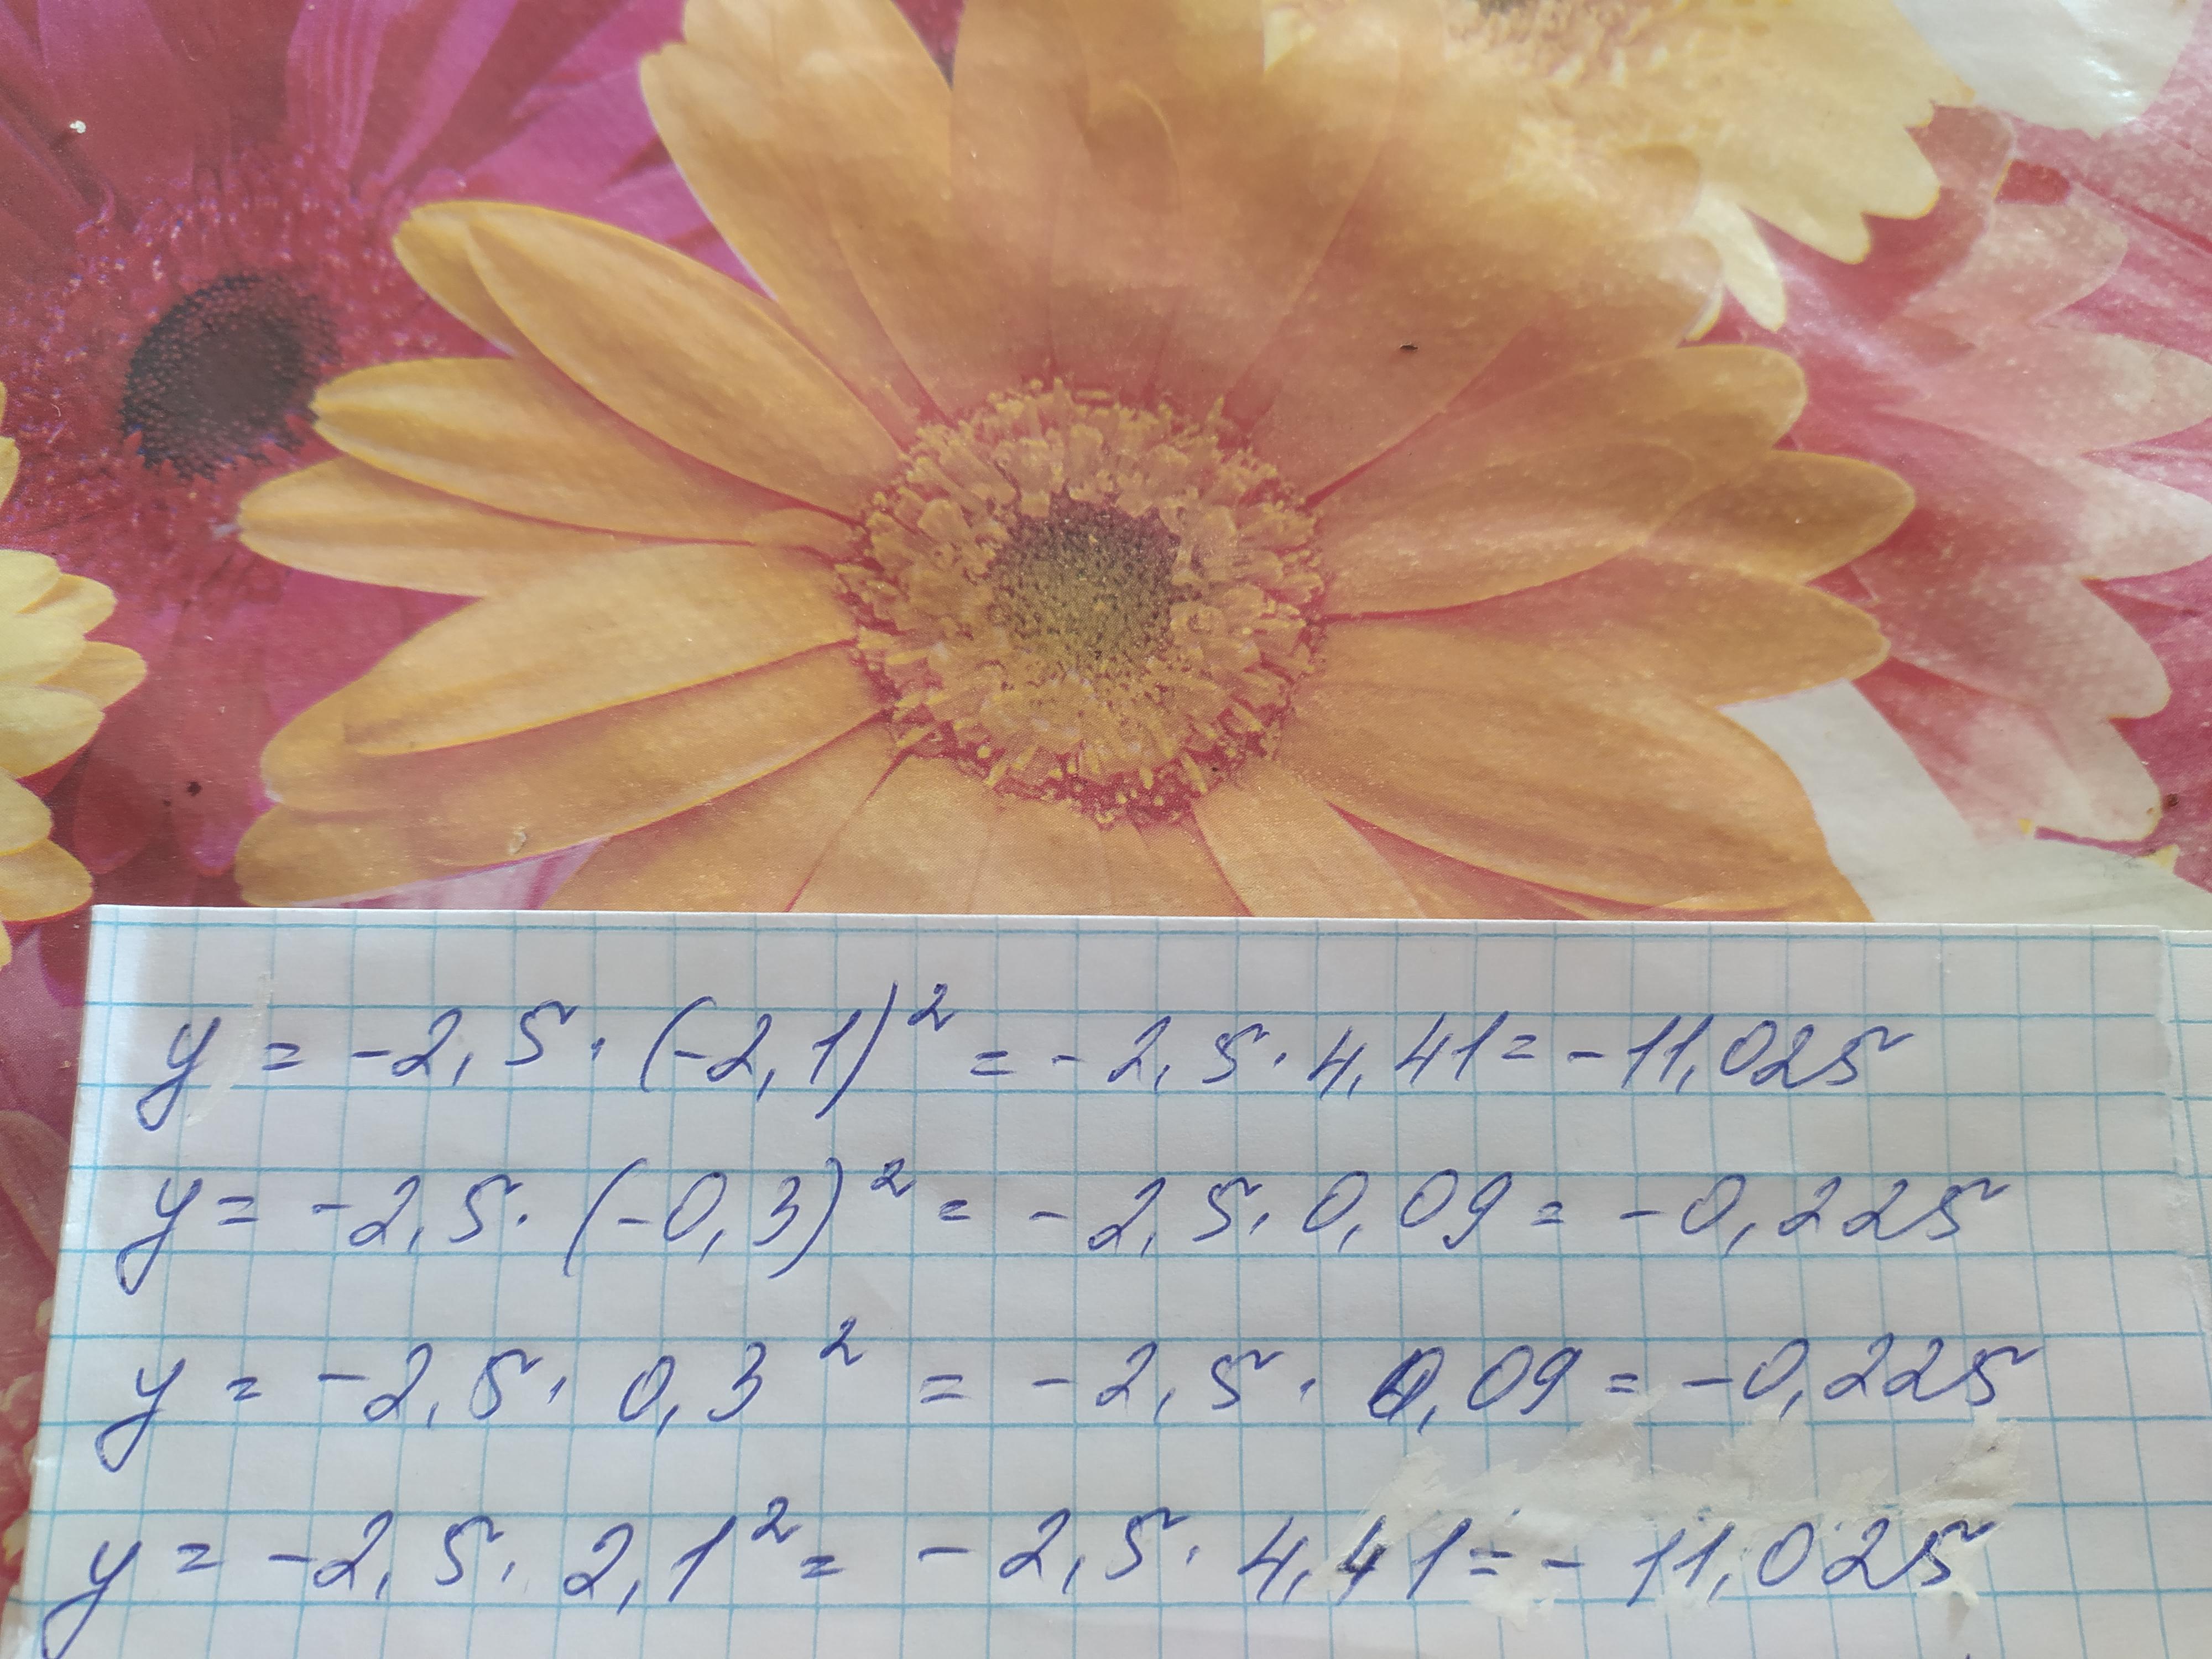 y = -2,5 · (-2,1)² = -2,5 · 4,41 = -11,025
y = -2,5 · (-0,3)² = -2,5 · 0,09 = -0,225
y = -2,5 · 0,3² = -2,5 · 0,09 = -0,225
y = -2,5 · 2,1² = -2,5 · 4,41 = -11,025